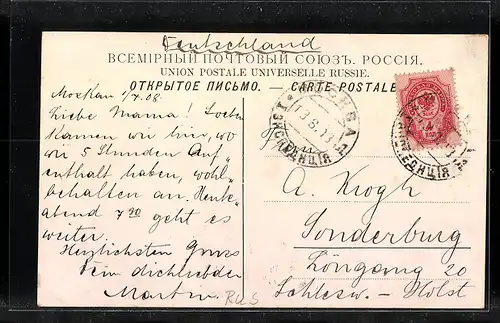 Deutschland
ВСЕМІРНЫЙ ПОЧТОВЫЙ СОЮЗЪ. РОССІЯ.
UNION POSTALE UNIVERSELLE RUSSIE.
ОТКРЫТОЕ ПИСЬМО. — CARTE POSTALE
Moskau 1/7.08.
Liebe Mama! Soeben
kamen wir hier, wo
wir 5 Stunden Auf-
enthalt haben, wohl
behalten an. Heute
abend 7 20 geht es
weiter.
Herzlichsten Gruss
Dein dichliebender
Martin.
МОСКВА
ЭКСПЕДИЦІЯ
A. Krogh
Sonderburg
Löngang 20
Schlesw.-Holst
Rus